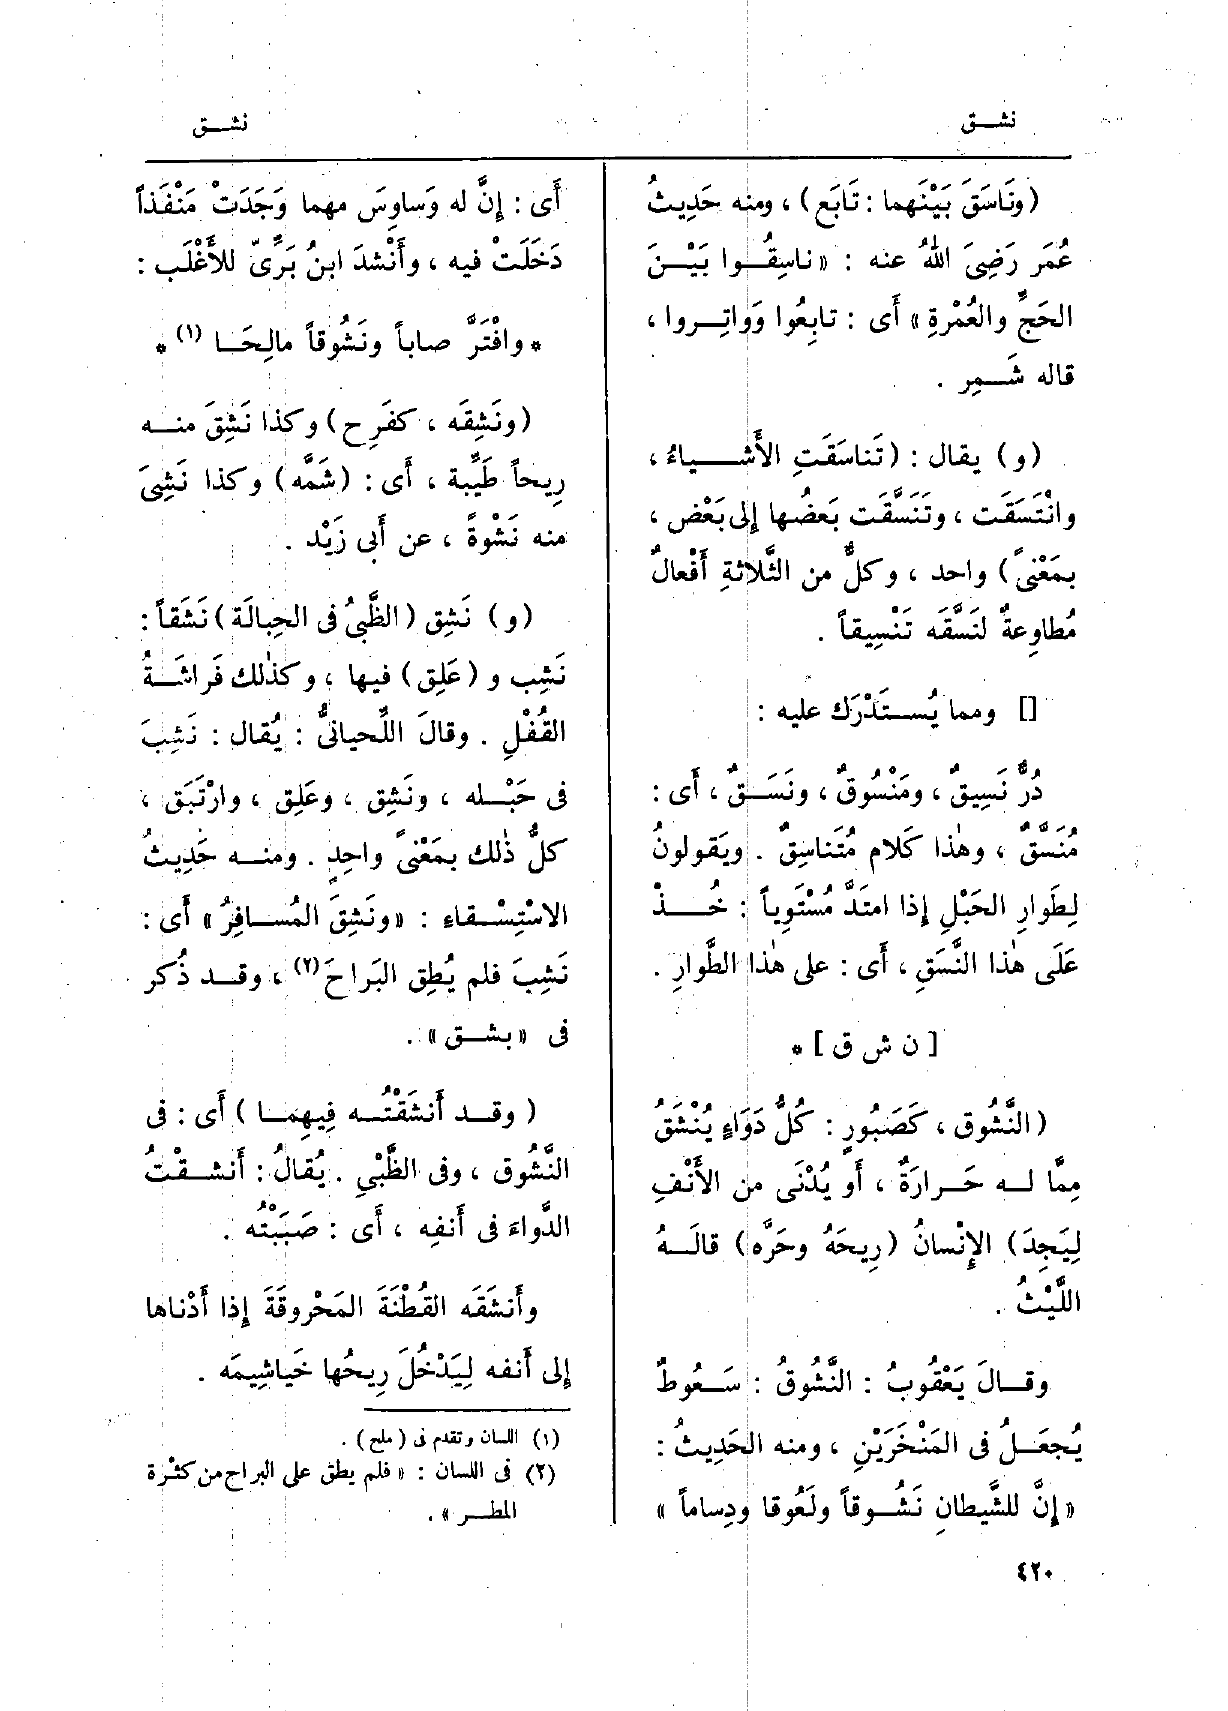 نشــق
نشــق
(ونَاسَقَ بَيْنَهما : تَابَع) ، ومنه حَدِيثُ
عُمَر رَضِىَ اللهُ عنه : «ناسِقُــوا بَيْــنَ
الحَجِّ والعُمْرةِ» أَى : تابِعُوا وَواتِــروا ،
قاله شَــمِر .
(و) يقال : (تَناسَقَتِ الأَشْيــاءُ ،
وانْتَسَقَت ، وتَنَسَّقَت بَعضُها إِلى بَعْض ،
بمَعْنىً) واحد ، وكلٌّ من الثَّلاثةِ أَفْعالٌ
مُطاوِعةٌ لنَسَّقَه تَنْسِيقاً .
[] ومما يُســتَدْرَك عليه :
دُرٌّ نَسِيقٌ ، ومَنْسُوقٌ ، ونَسَــقٌ ، أَى :
مُنَسَّقٌ ، وهٰذا كَلام مُتَناسِقٌ . ويَقولونُ
لِطَوارِ الحَبْلِ إِذا امتَدَّ مُسْتَوِياً : خُــذْ
عَلَى هٰذا النَّسَقِ ، أَى : على هٰذا الطَّوارِ .
[ ن ش ق ] *
(النَّشُوق ، كَصَبُورٍ : كُلُّ دَوَاءٍ يُنْشَقُ
مِمَّا لــه حَــرارَةٌ ، أَو يُدْنَى من الأَنْفِ
لِيَجِدَ) الإِنْسانُ (رِيحَهُ وحَرَّه) قالَــهُ
اللَّيْثُ .
وقــالَ يَعْقُوبُ : النَّشُوقُ : سَــعُوطٌ
يُجعَــلُ فى المَنْخَرَيْنِ ، ومنه الحَدِيثُ :
«إِنَّ للشَّيطانِ نَشُــوقاً ولَعُوقا ودِساماً»
أَى : إِنَّ له وَساوِسَ مهما وَجَدَتْ مَنْفَذاً
دَخَلَتْ فيه ، وأَنْشدَ ابنُ بَرِّىّ للأَغْلَب :
* وافْتَرَّ صاباً ونَشُوقاً مالِحَــا (١) *
(ونَشِقَه ، كفَرِح) وكذا نَشِقَ منــه
رِيحاً طَيِّبة ، أَى : (شَمَّه) وكذا نَشِىَ
منه نَشْوةً ، عن أَبى زَيْد .
(و) نَشِق (الظَّبىُ فى الحِبالَة) نَشَقاً :
نَشِب و (عَلِق) فيها ، وكذٰلك فَراشَــةُ
القُفْلِ . وقالَ اللِّحيانىُّ : يُقال : نَشِبَ
فى حَبْــله ، ونَشِق ، وعَلِق ، وارْتَبَق ،
كلُّ ذٰلك بمَعْنىً واحِدٍ . ومنــه حَدِيثُ
الاسْتِسْــقاء : «ونَشِقَ المُســافِرُ» أَى :
نَشِبَ فلم يُطِق البَراحَ (٢) ، وقــد ذُكر
فى «بشــق» .
( وقــد أَنشَقْتُــه فِيهِمَــا ) أَى : فى
النَّشُوق ، وفى الظَّبْيِ . يُقالُ : أَنشــقْتُ
الدَّواءَ فى أَنفِه ، أَى : صَبَبْتُه .
وأَنشَقَه القُطْنَةَ المَحْروقَةَ إِذا أَدْناها
إِلى أَنفه لِيَدْخُلَ رِيحُها خَياشِيمَه .
(١) اللسان وتقدم فى (ملح) .
(٢) فى اللسان : «فلم يطق على البراح من كثرة
المطــر» .
٤٢٠